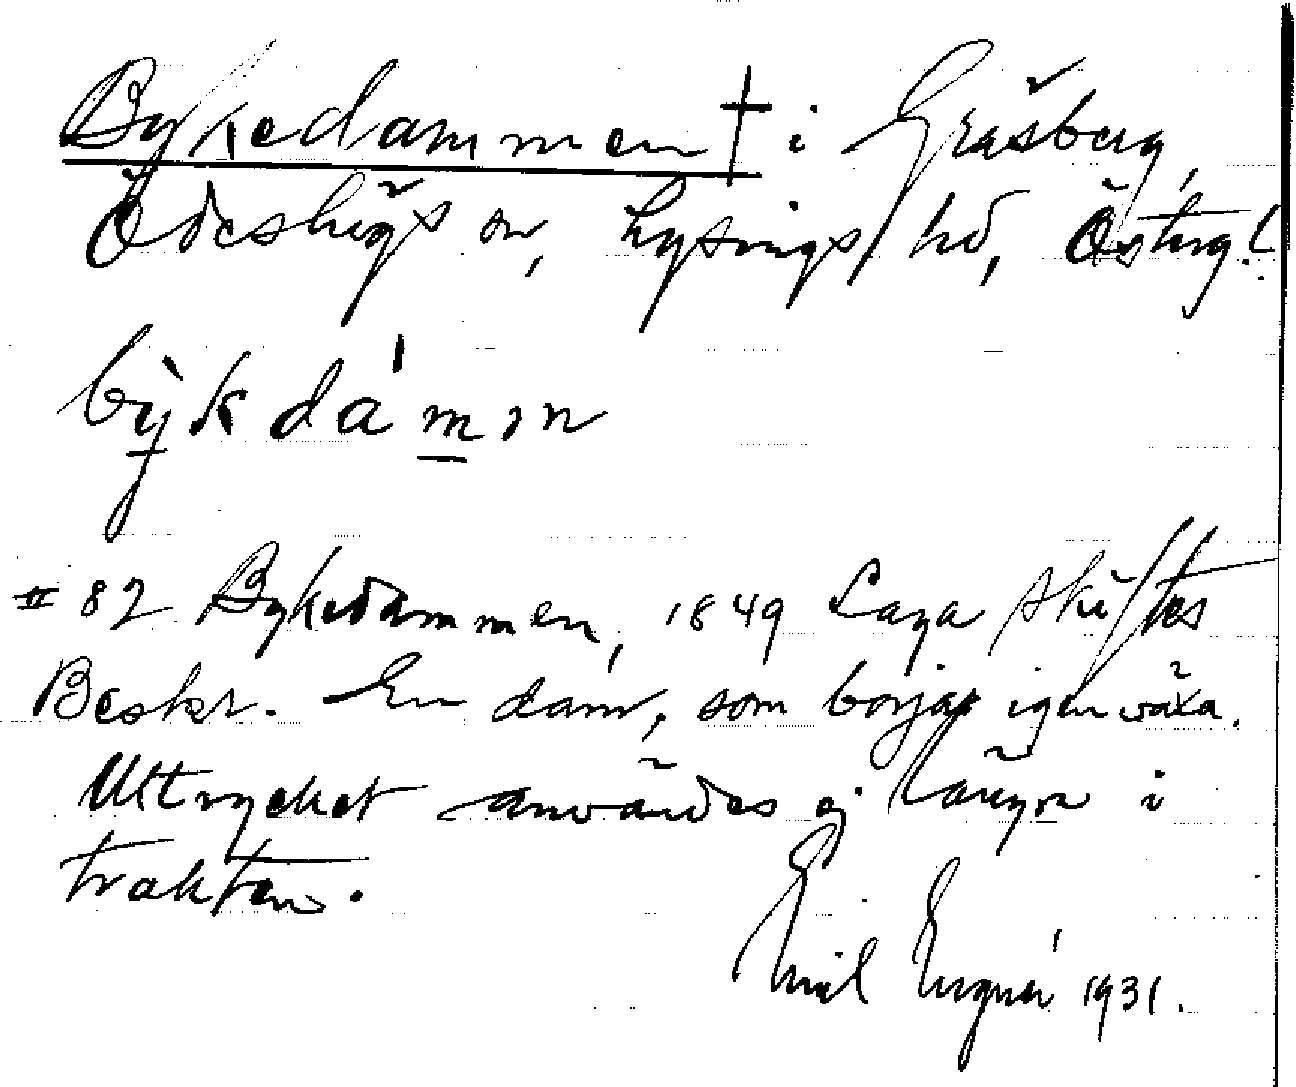 Bykedammen † i Gråsberg,
Ödeshögs sn, Lysings hd, Östergl.
bỳkdám̲ən
# 82 Bykedammen, 1849 Laga skiftes
Beskr. En dam, som börjar igenväxa.
Uttrycket användes ej längre i
trakten.
Emil 1931.